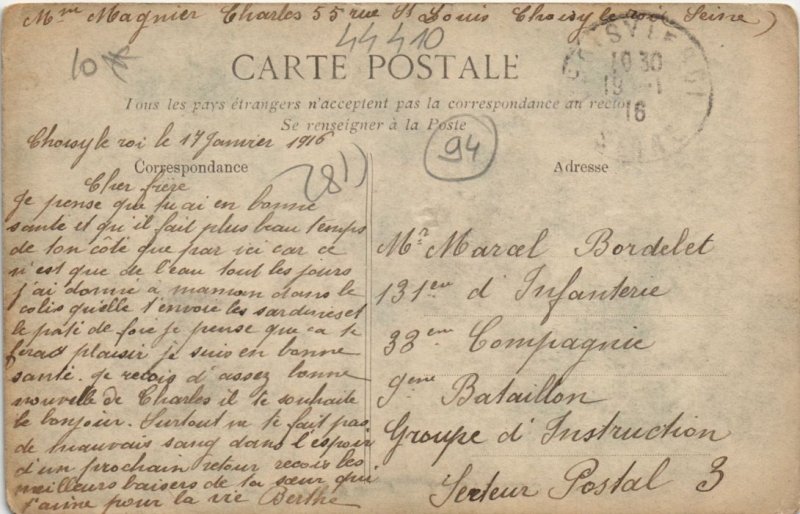 Mme Magnier Charles 55 rue St Louis Choisy le roi Seine)
44410
10
CARTE POSTALE
Tous les pays étrangers n'acceptent pas la correspondance au recto
Se renseigner à la Poste
94
CHOISY LE ROI
10 30
19 -1
16
Choisy le roi le 17 Janvier 1916
Correspondance
(281)
Cher frère
Je pense que tu ai en bonne
santé et qu'il fait plus beau temps
de ton côté que par ici car ce
n'est que de l'eau tout les jours
j'ai donné à maman dans le
colis qu'elle t'envoie les sardines et
le pâté de foie je pense que ça te
ferat plaisir je suis en bonne
santé. Je reçois d'assez bonne
nouvelle de Charles il te souhaite
le bonjour. Surtout ne te fait pas
de mauvais sang dans l'espoir
d'un prochain retour reçoir les
meilleurs baisers de ta sœur qui
t'aime pour la vie Berthe
Adresse
Mr Marcel Bordelet
131eme d'Infanterie
33eme Compagnie
9eme Bataillon
Groupe d'Instruction
Secteur Postal 3